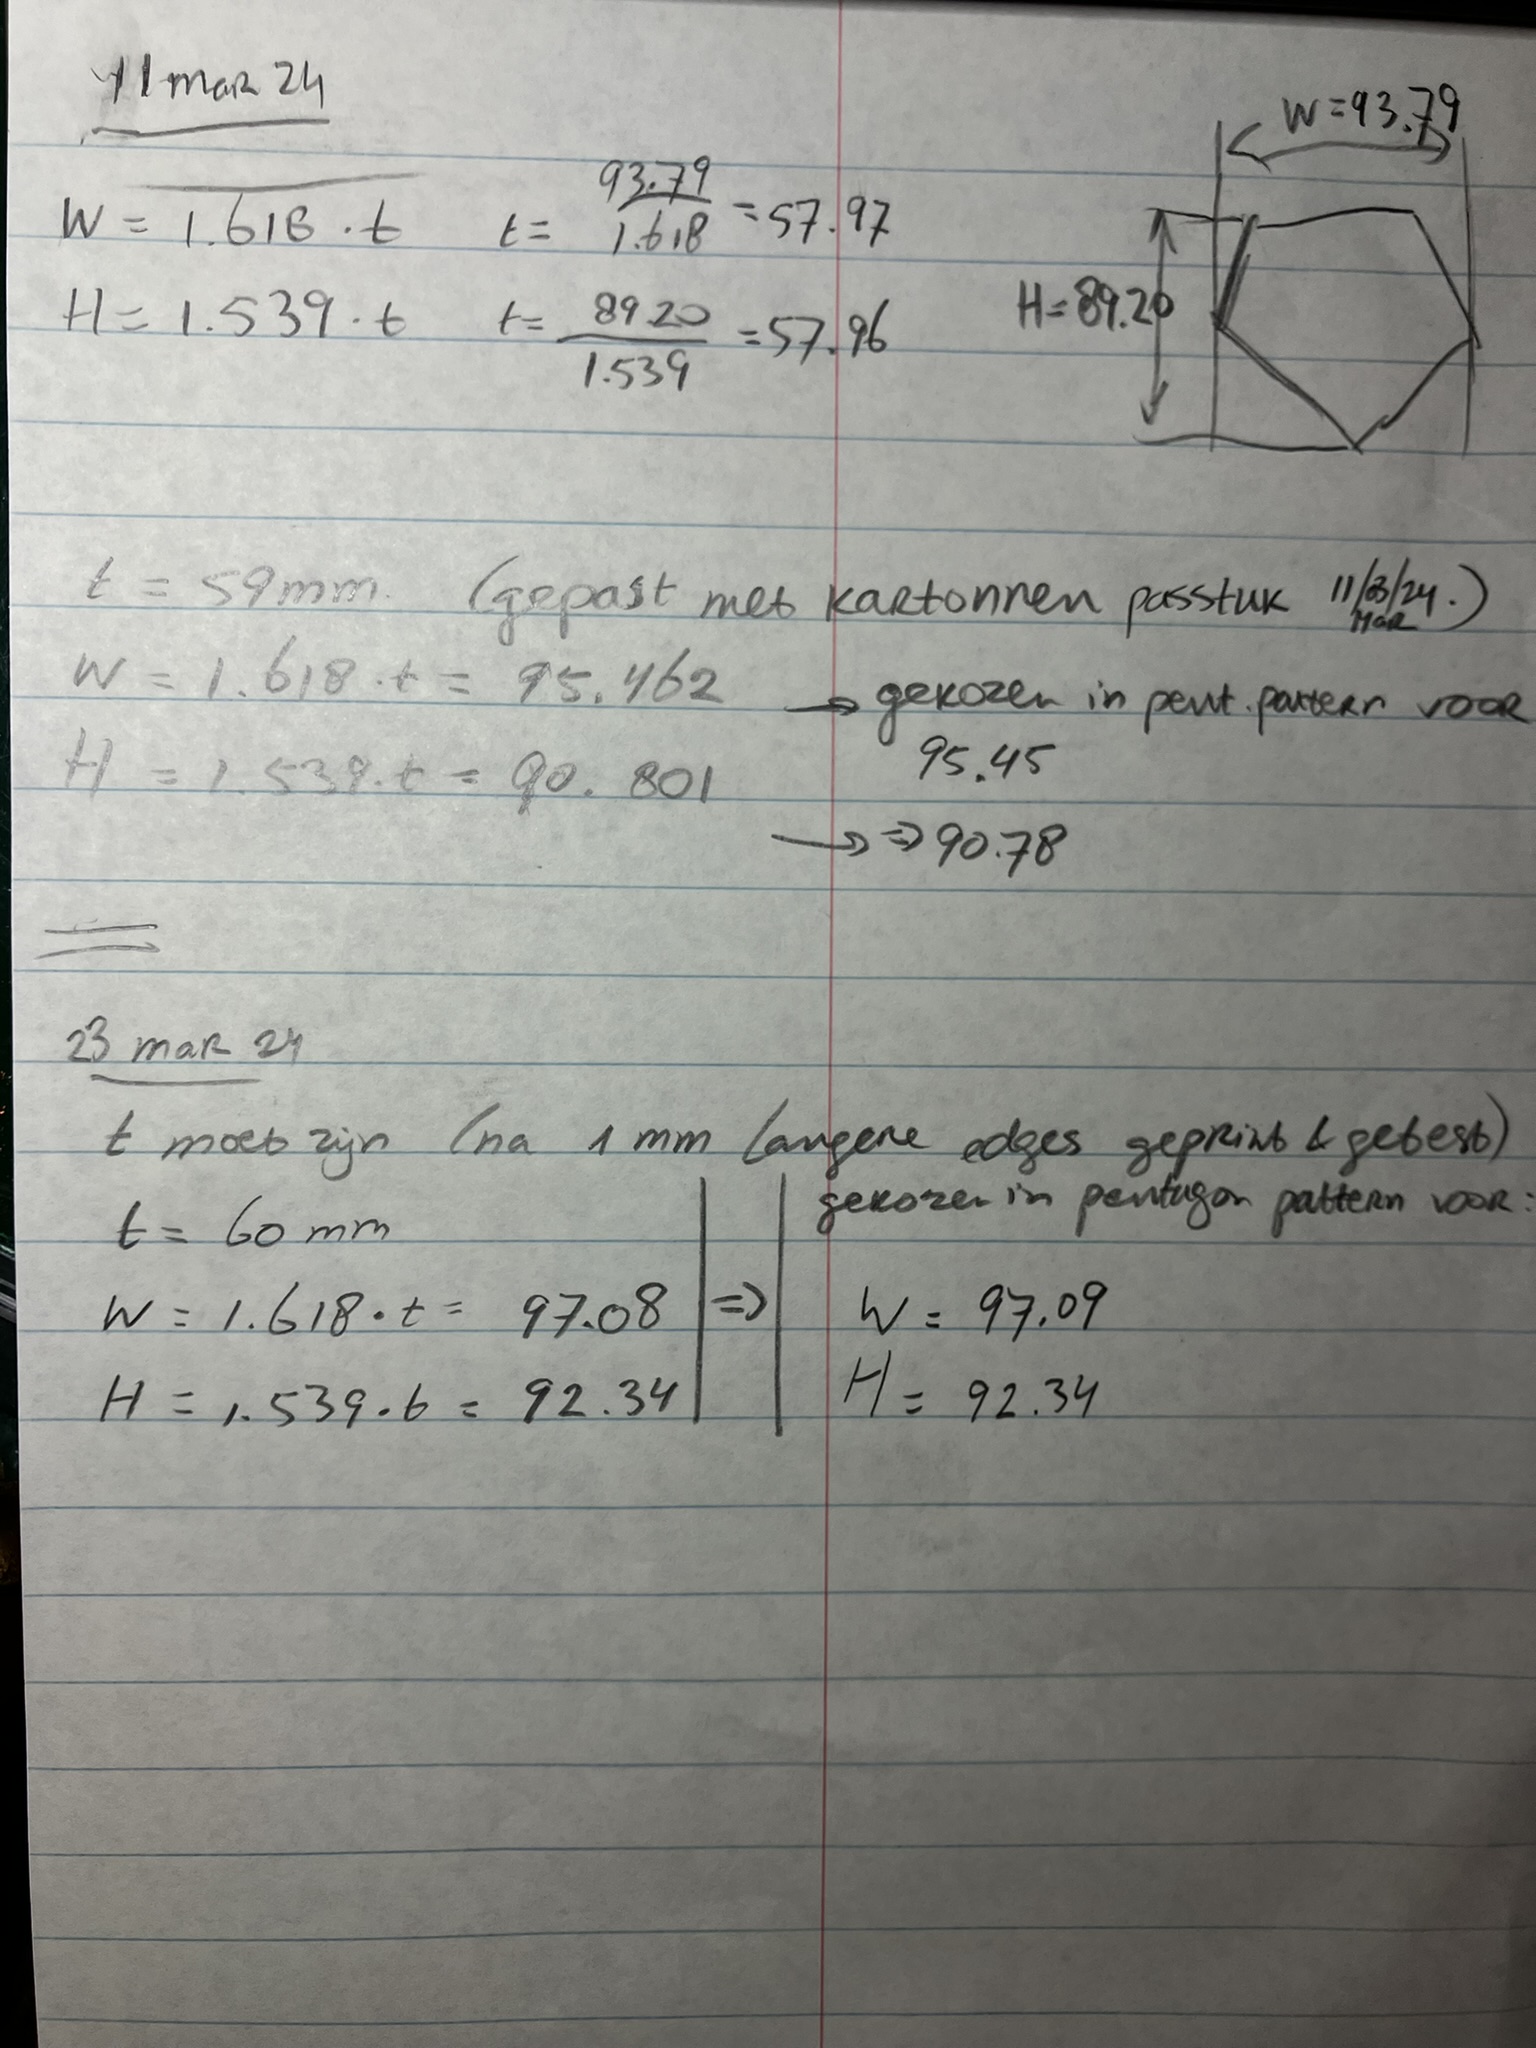 11 mar 24
W = 93.79
W = 1.618 . t    t = 93.79 / 1.618 = 57.97
H = 1.539 . t    t = 89.20 / 1.539 = 57.96
H = 89.20
t = 59mm. (gepast met kartonnen passtuk 11/03/24.)
MAR
W = 1.618 . t = 95.462 → gekozen in pent. pattern voor
95.45
H = 1.539 . t = 90.801
→ ⇒ 90.78
23 mar 24
t moet zijn (na 1 mm langere edges geprint & getest)
gekozen in pentagon pattern voor:
t = 60 mm
W = 1.618 . t = 97.08 ⇒ W = 97.09
H = 1.539 . t = 92.34 H = 92.34